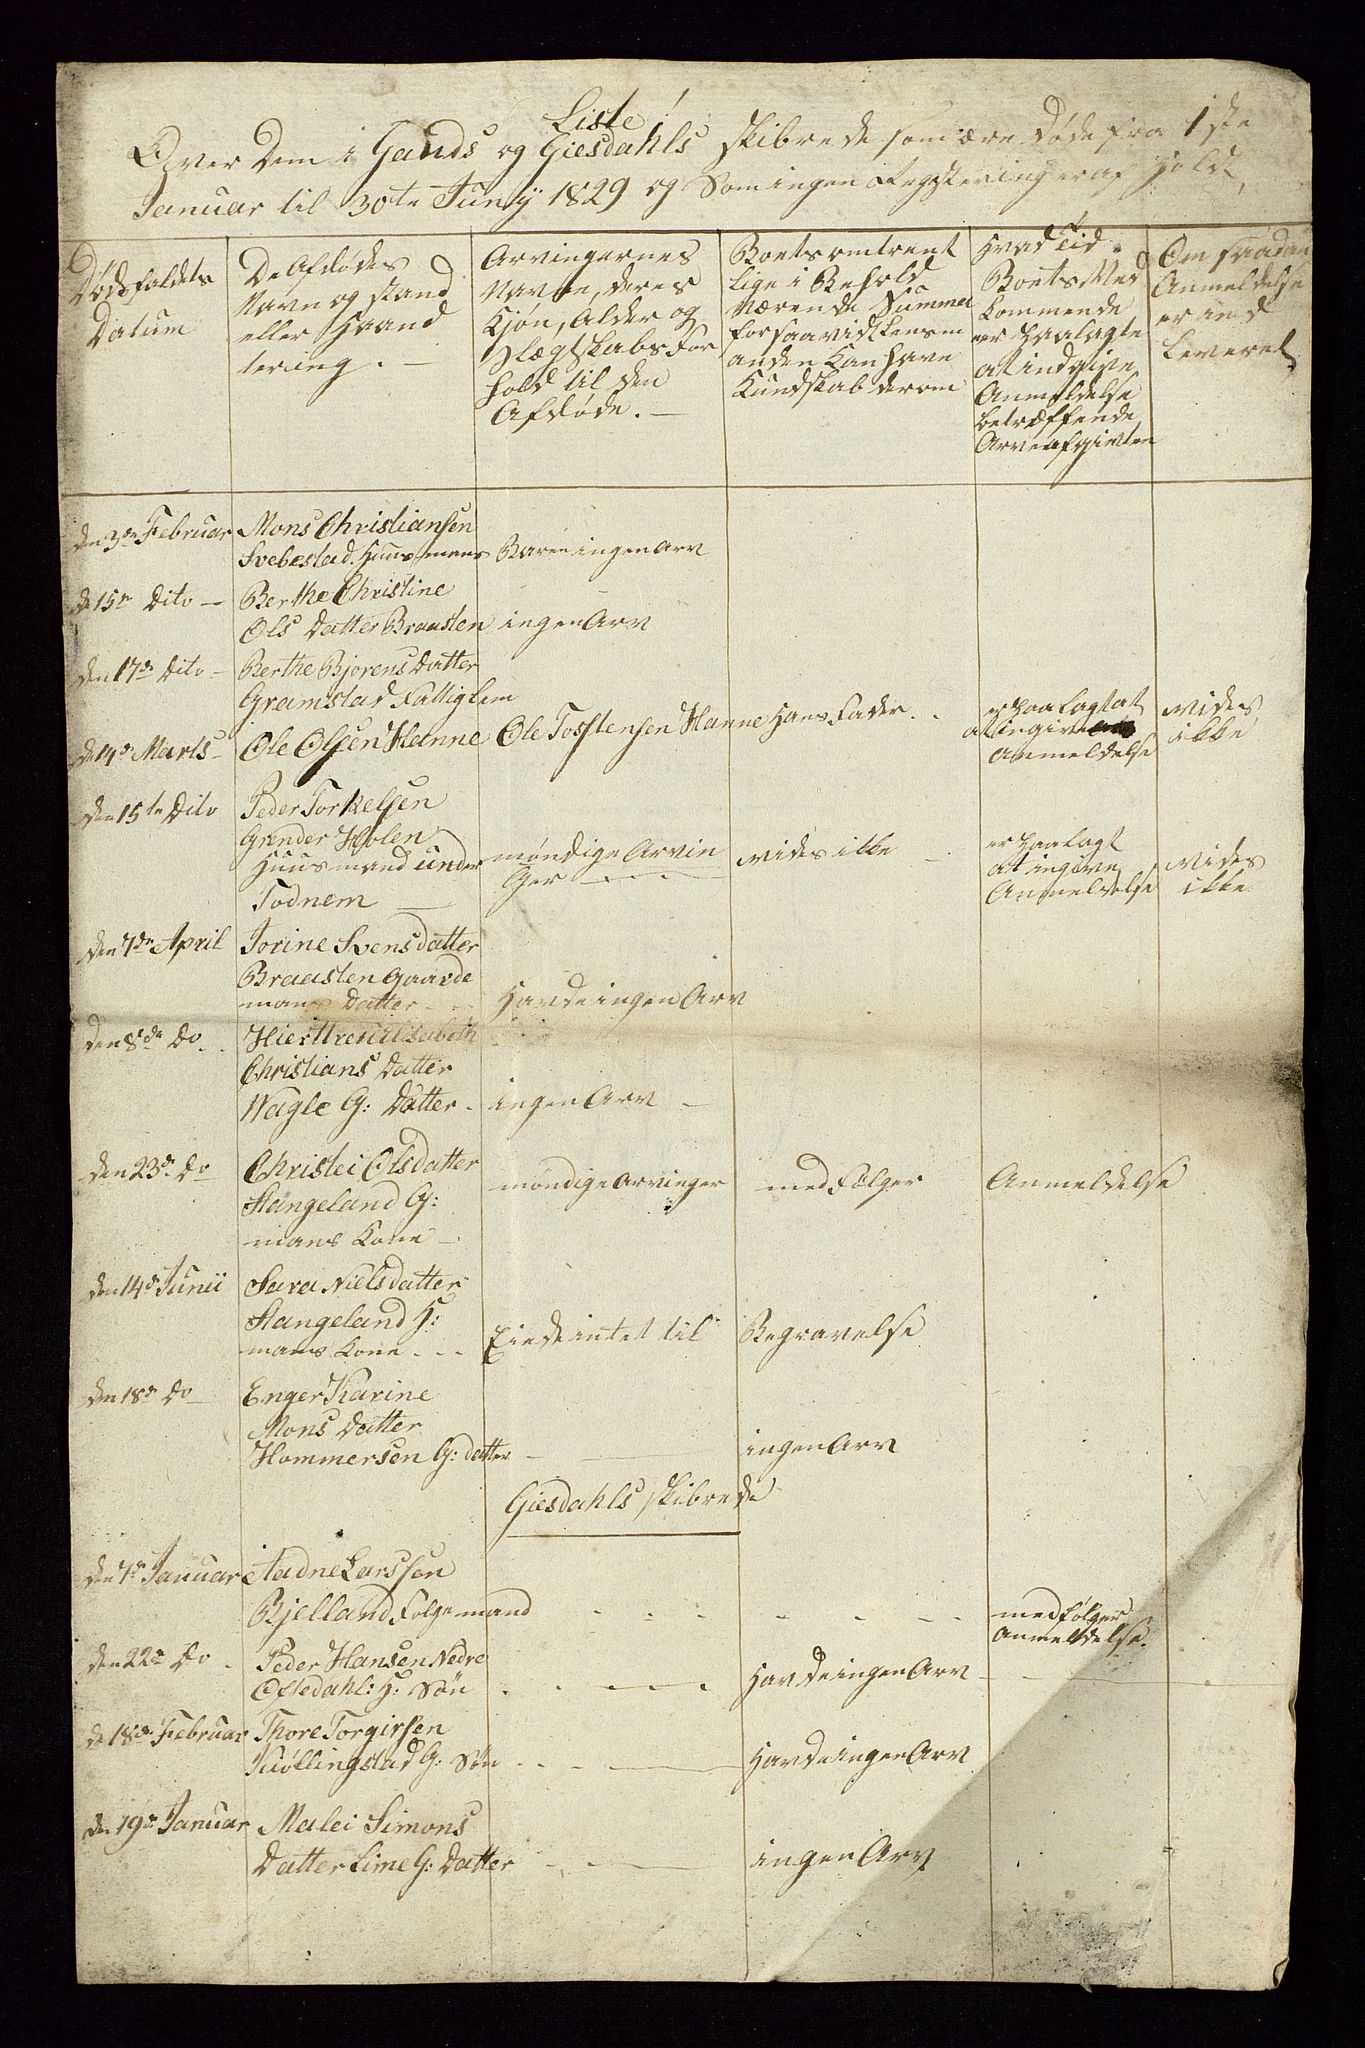 Liste
Over Dem i Gands og Giesdahls skibrede som ere Døde fra 1ste
Januar til 30te Junij 1829 og Som ingen Registering er af Holdt,
Dødsfaldets
Datum
De Afdødes
Navn og stand
eller Haand
tering. -
Arvingernes
Navne, deres
Kjøn, Alder og
Slægtskabs For
hold til den
Afdøde. -
Boets omtrent
lige i Behold
Værende Summa
forsaavidt Lensm
anden Kan have
Kundskab derom
Hvad Tid
Boets Ved
kommende
er paalagte
at indgive
Anmeldelse
betræffende
Arveafgivten
Om saadan
Anmeldelse
er ind
Leveret
den 3de Februar Mons Christiansen
Svebestad. Huusmans Barn ingen Arv
d 15de Dito - Berthe Christine
Ols Datter Braasten ingen Arv
den 17de Dito - Berthe Bjorens Datter
Gramstad Fattiglem
den 4de Marts - Ole Olsen Hanne Ole Tosstensen Hanne Hans Fader . . er paalagt at
at ingive
Anmeldelse
vides
ikke
den 15te Dito Peder Torkelsen
Grender Holen
Huusmand under
Todnem -
møndige Arvin
Ger - - -
vides ikke -
er paalagt
at ingive
Anmeldelse
vides
ikke
den 7de April Jorine Svensdatter
Braasten Gaarde
mans Datter - . Havde ingen Arv
den 8de Do . . Hier Elisabeth
Christians Datter
Wagle G: Datter . ingen Arv -
den 23de Do Christei Olsdatter
Hangeland G:
mans Kone -
møndige Arvinger med Følger Anmeldelse
den 14de Junii Sara Nielsdatter
Hangeland H:
mans Kone . . . Eiede intet til Begravelse
den 18de Do - Enger Karine
Mons Datter
Hommersen G: datter - - ingen Arv
Giesdahls skibrede
den 7de Januar Aadne Larssen
Bjelland Følgemand - - - - - - - med følger
Anmeldelse.
den 22de Do . Peder Hansen Nedre
Oftedahl: H: Søn . . - - . Havde ingen Arv - -
de 18de Februar Thore Torgirsen
Køllingstad G: Søn . . - - Havde ingen Arv
den 19de Januar Malei Simons
Datter Lime G: Datter - - - ingen Arv